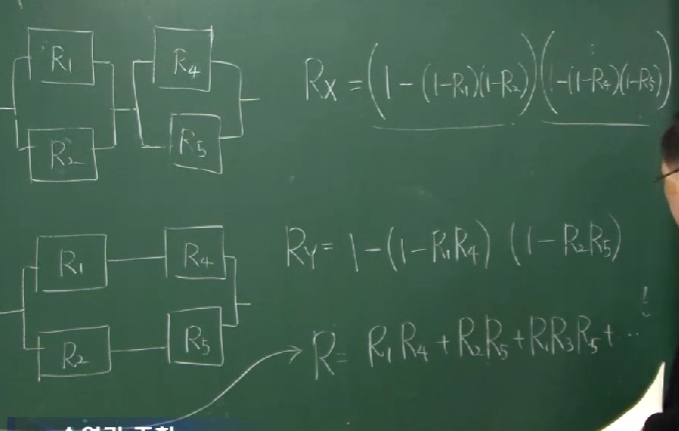 R₁ R₄
R₂ R₅
Rx = (1-(1-R₁)(1-R₂))(1-(1-R₄)(1-R₅))
R₁ R₄
R₂ R₅
Ry = 1-(1-R₁R₄) (1-R₂R₅)
R = R₁R₄ + R₂R₅ + R₁R₃R₅ + ..